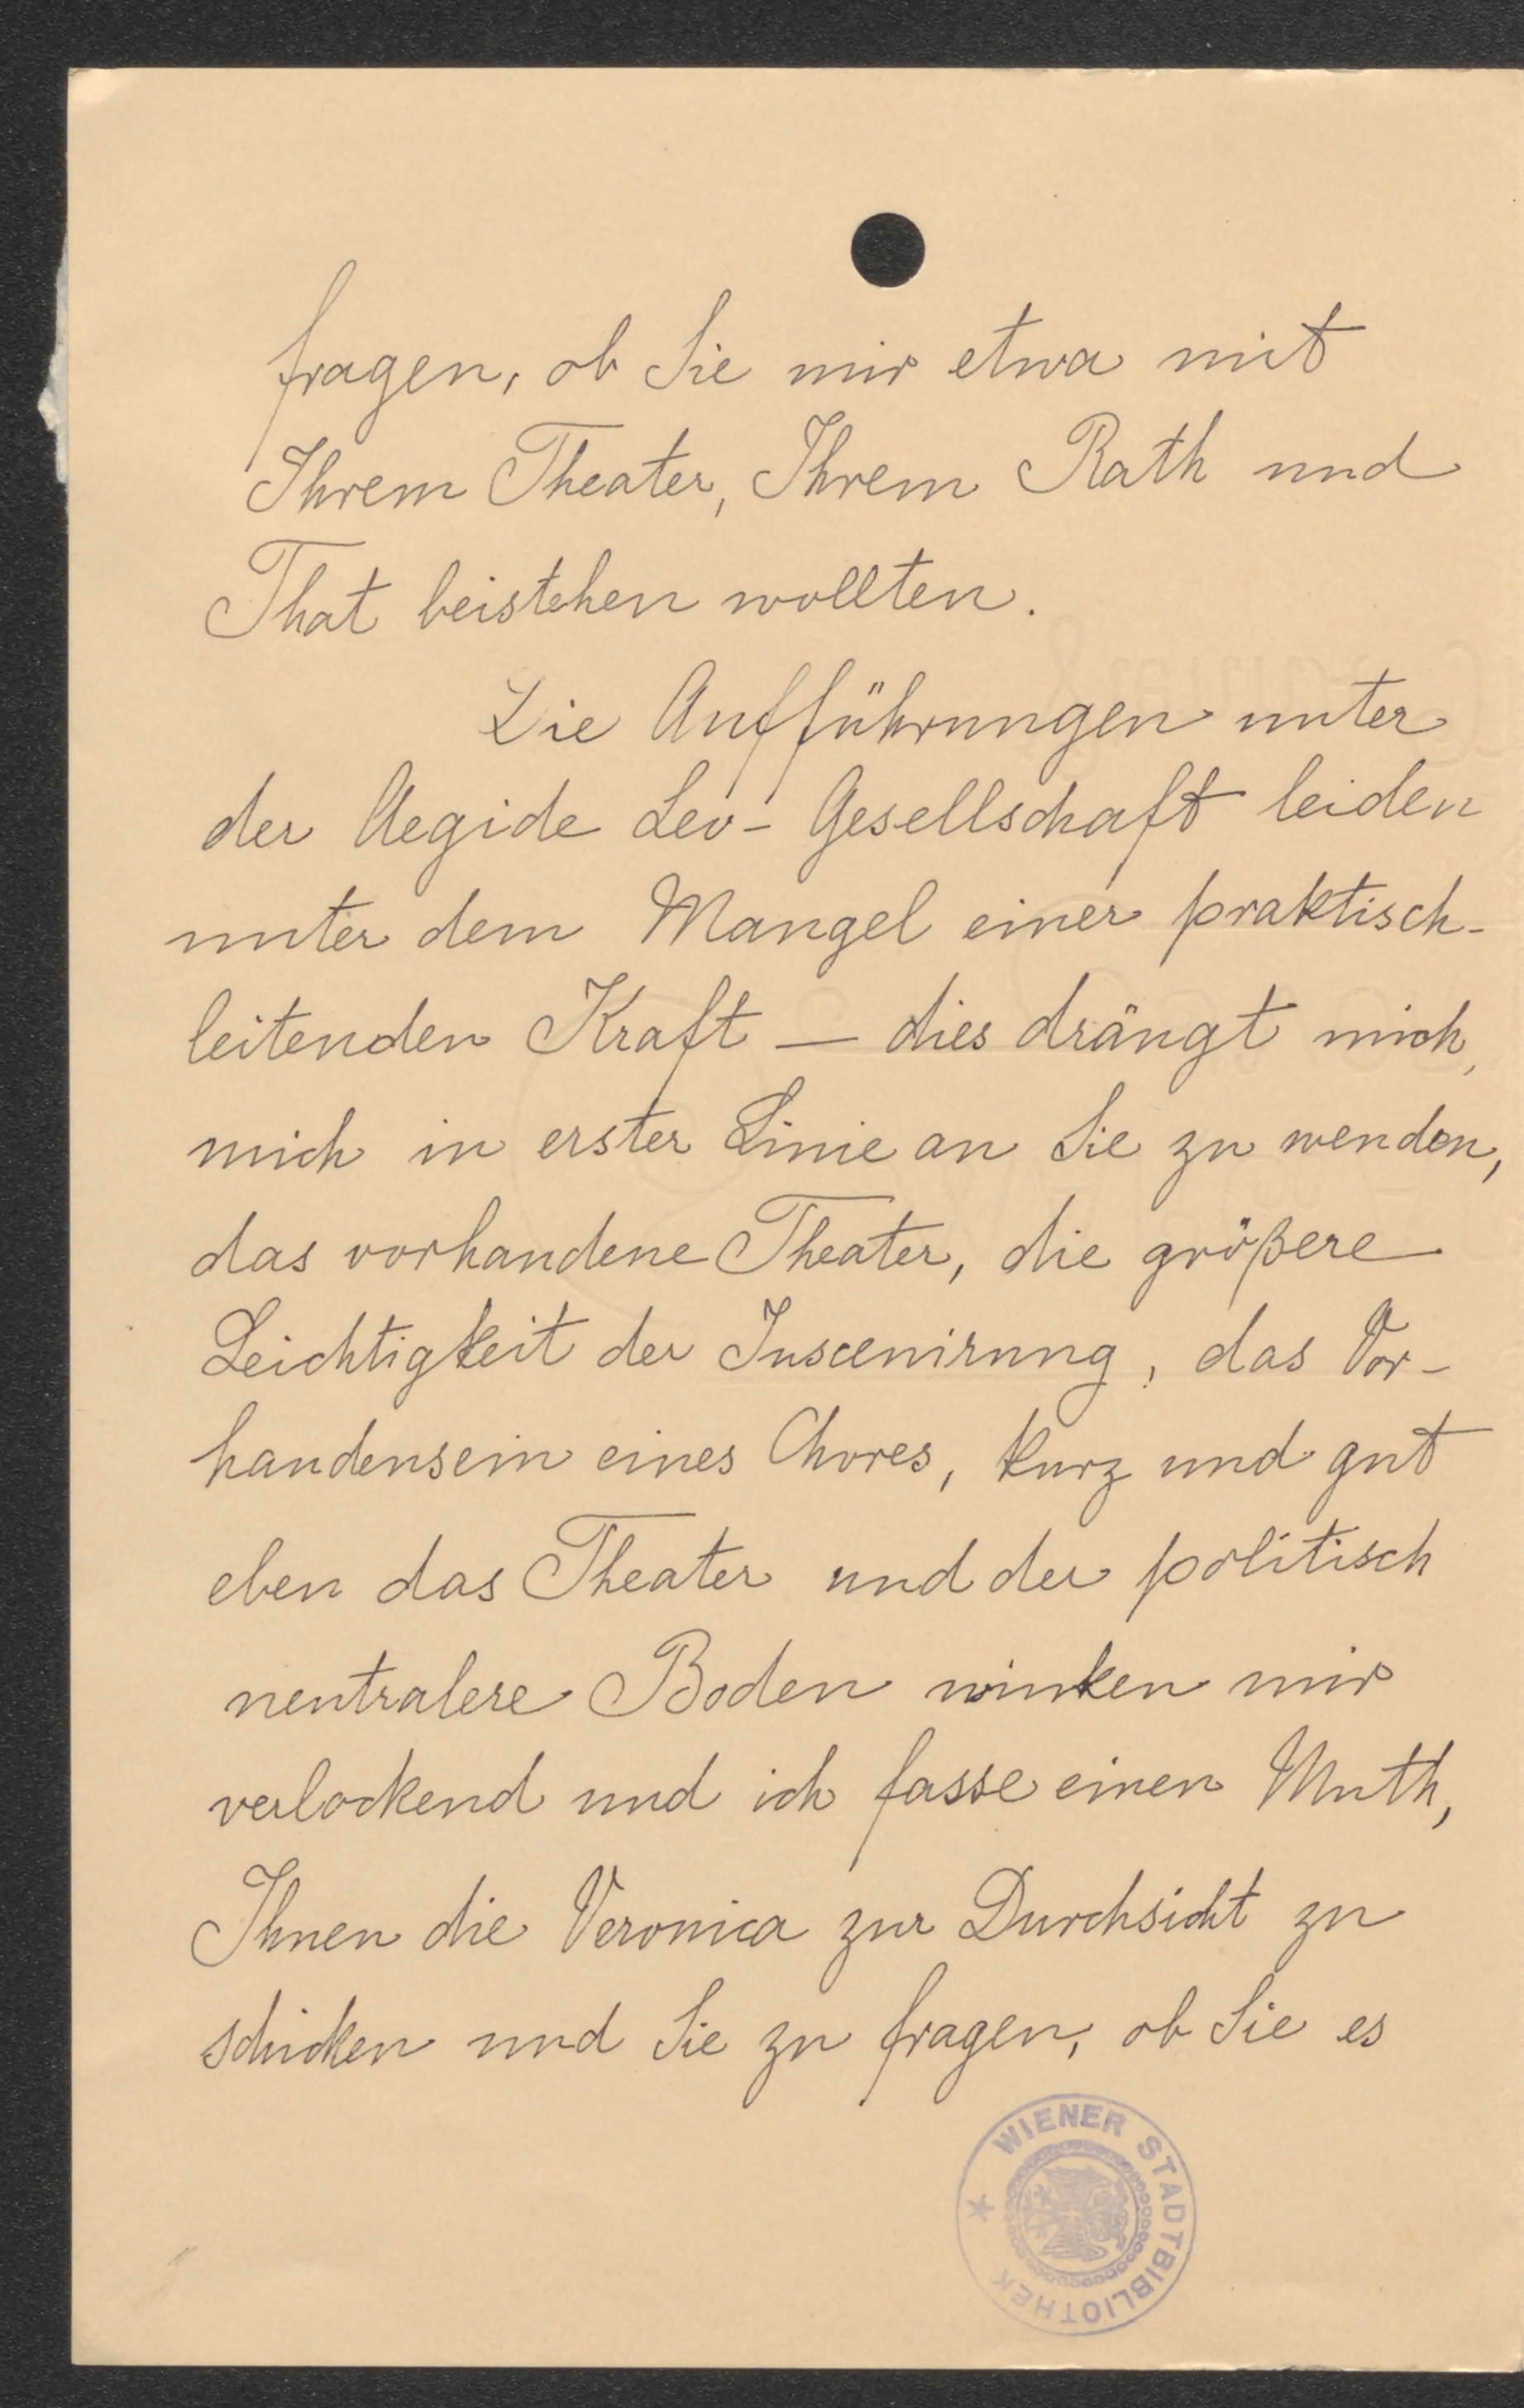 fragen, ob Sie mir etwa mit
Ihrem Theater, Ihrem Rath und
That beistehen wollten.
Die Aufführungen unter
der Aegide Leo-Gesellschaft leiden
unter dem Mangel einer praktisch-
leitenden Kraft — dies drängt mich,
mich in erster Linie an Sie zu wenden,
das vorhandene Theater, die größere
Leichtigkeit der Inscenirung, das Vor-
handensein eines Chores, kurz und gut
eben das Theater und der politisch
neutralere Boden winken mir
verlockend und ich fasse einen Muth,
Ihnen die Veronica zur Durchsicht zu
schicken und Sie zu fragen, ob Sie es
WIENER STADTBIBLIOTHEK